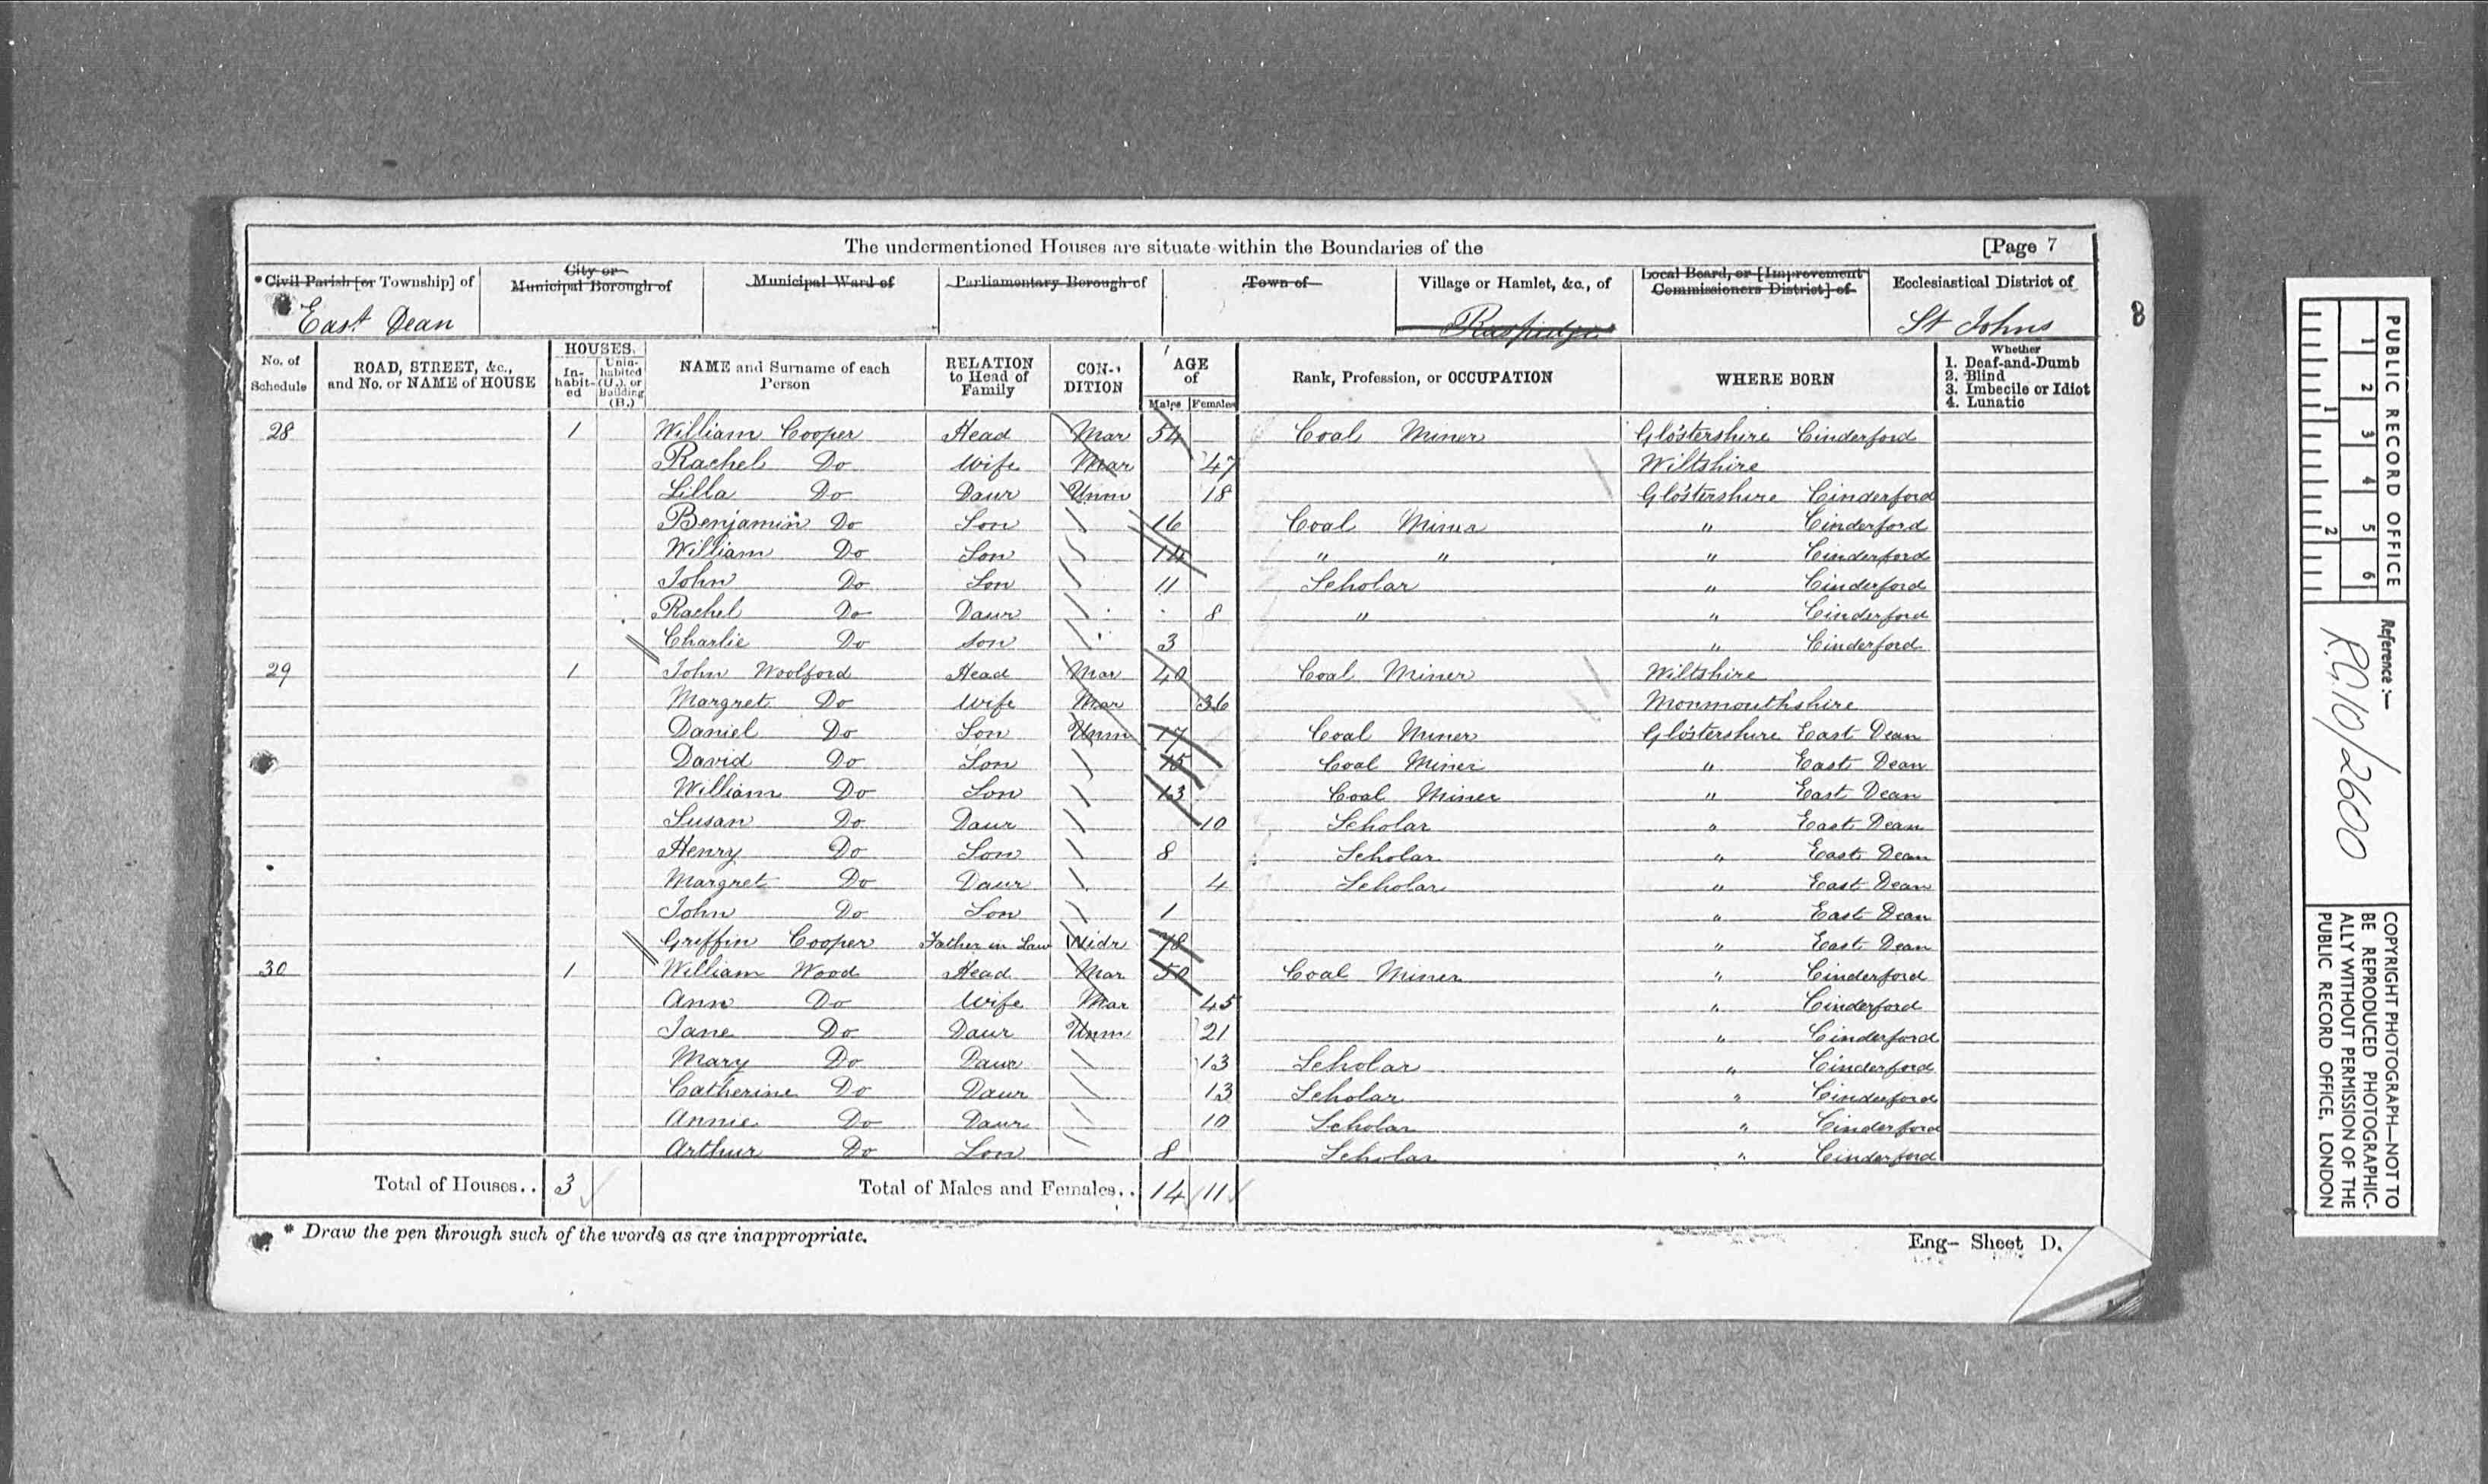 The undermentioned Houses are situate within the Boundaries of the [Page 7
* Civil Parish [or Township] of City or Municipal Borough of Municipal Ward of Parliamentary Borough of Town of Village or Hamlet, &c., of Local Board, or [Improvement Commissioners District] of Ecclesiastical District of
East Dean St Johns
8
No. of Schedule ROAD, STREET, &c., and No. or NAME of HOUSE HOUSES. Inhabited Uninhabited (U.), or Building (B.) NAME and Surname of each Person RELATION to Head of Family CONDITION AGE of Males Females Rank, Profession, or OCCUPATION WHERE BORN Whether 1. Deaf-and-Dumb 2. Blind 3. Imbecile or Idiot 4. Lunatic
28 1 William Cooper Head Mar 54 Coal Miner Glostershire Cinderford
Rachel Do Wife Mar 47 Wiltshire
Lilla Do Daur Unm 18 Glostershire Cinderford
Benjamin Do Son 16 Coal Miner " Cinderford
William Do Son 14 " " " Cinderford
John Do Son 11 Scholar " Cinderford
Rachel Do Daur 8 " " Cinderford
Charlie Do Son 3 " Cinderford
29 1 John Woolford Head Mar 40 Coal Miner Wiltshire
Margret Do Wife Mar 36 Monmouthshire
Daniel Do Son Unm 17 Coal Miner Glostershire East Dean
David Do Son 15 Coal Miner " East Dean
William Do Son 13 Coal Miner " East Dean
Susan Do Daur 10 Scholar " East Dean
Henry Do Son 8 Scholar " East Dean
Margret Do Daur 4 Scholar " East Dean
John Do Son 1 " East Dean
Griffin Cooper Father in Law Widr 78 " East Dean
30 1 William Wood Head Mar 50 Coal Miner " Cinderford
Ann Do Wife Mar 45 " Cinderford
Jane Do Daur Unm 21 " Cinderford
Mary Do Daur 13 Scholar " Cinderford
Catherine Do Daur 13 Scholar " Cinderford
Annie Do Daur 10 Scholar " Cinderford
Arthur Do Son 8 Scholar " Cinderford
Total of Houses.. 3 Total of Males and Females.. 14 11
* Draw the pen through such of the words as are inappropriate.
Eng- Sheet D.
PUBLIC RECORD OFFICE
1 2 3 4 5 6
1 2
Reference:-
R.G.10/2600
COPYRIGHT PHOTOGRAPH—NOT TO
BE REPRODUCED PHOTOGRAPHIC-
ALLY WITHOUT PERMISSION OF THE
PUBLIC RECORD OFFICE, LONDON